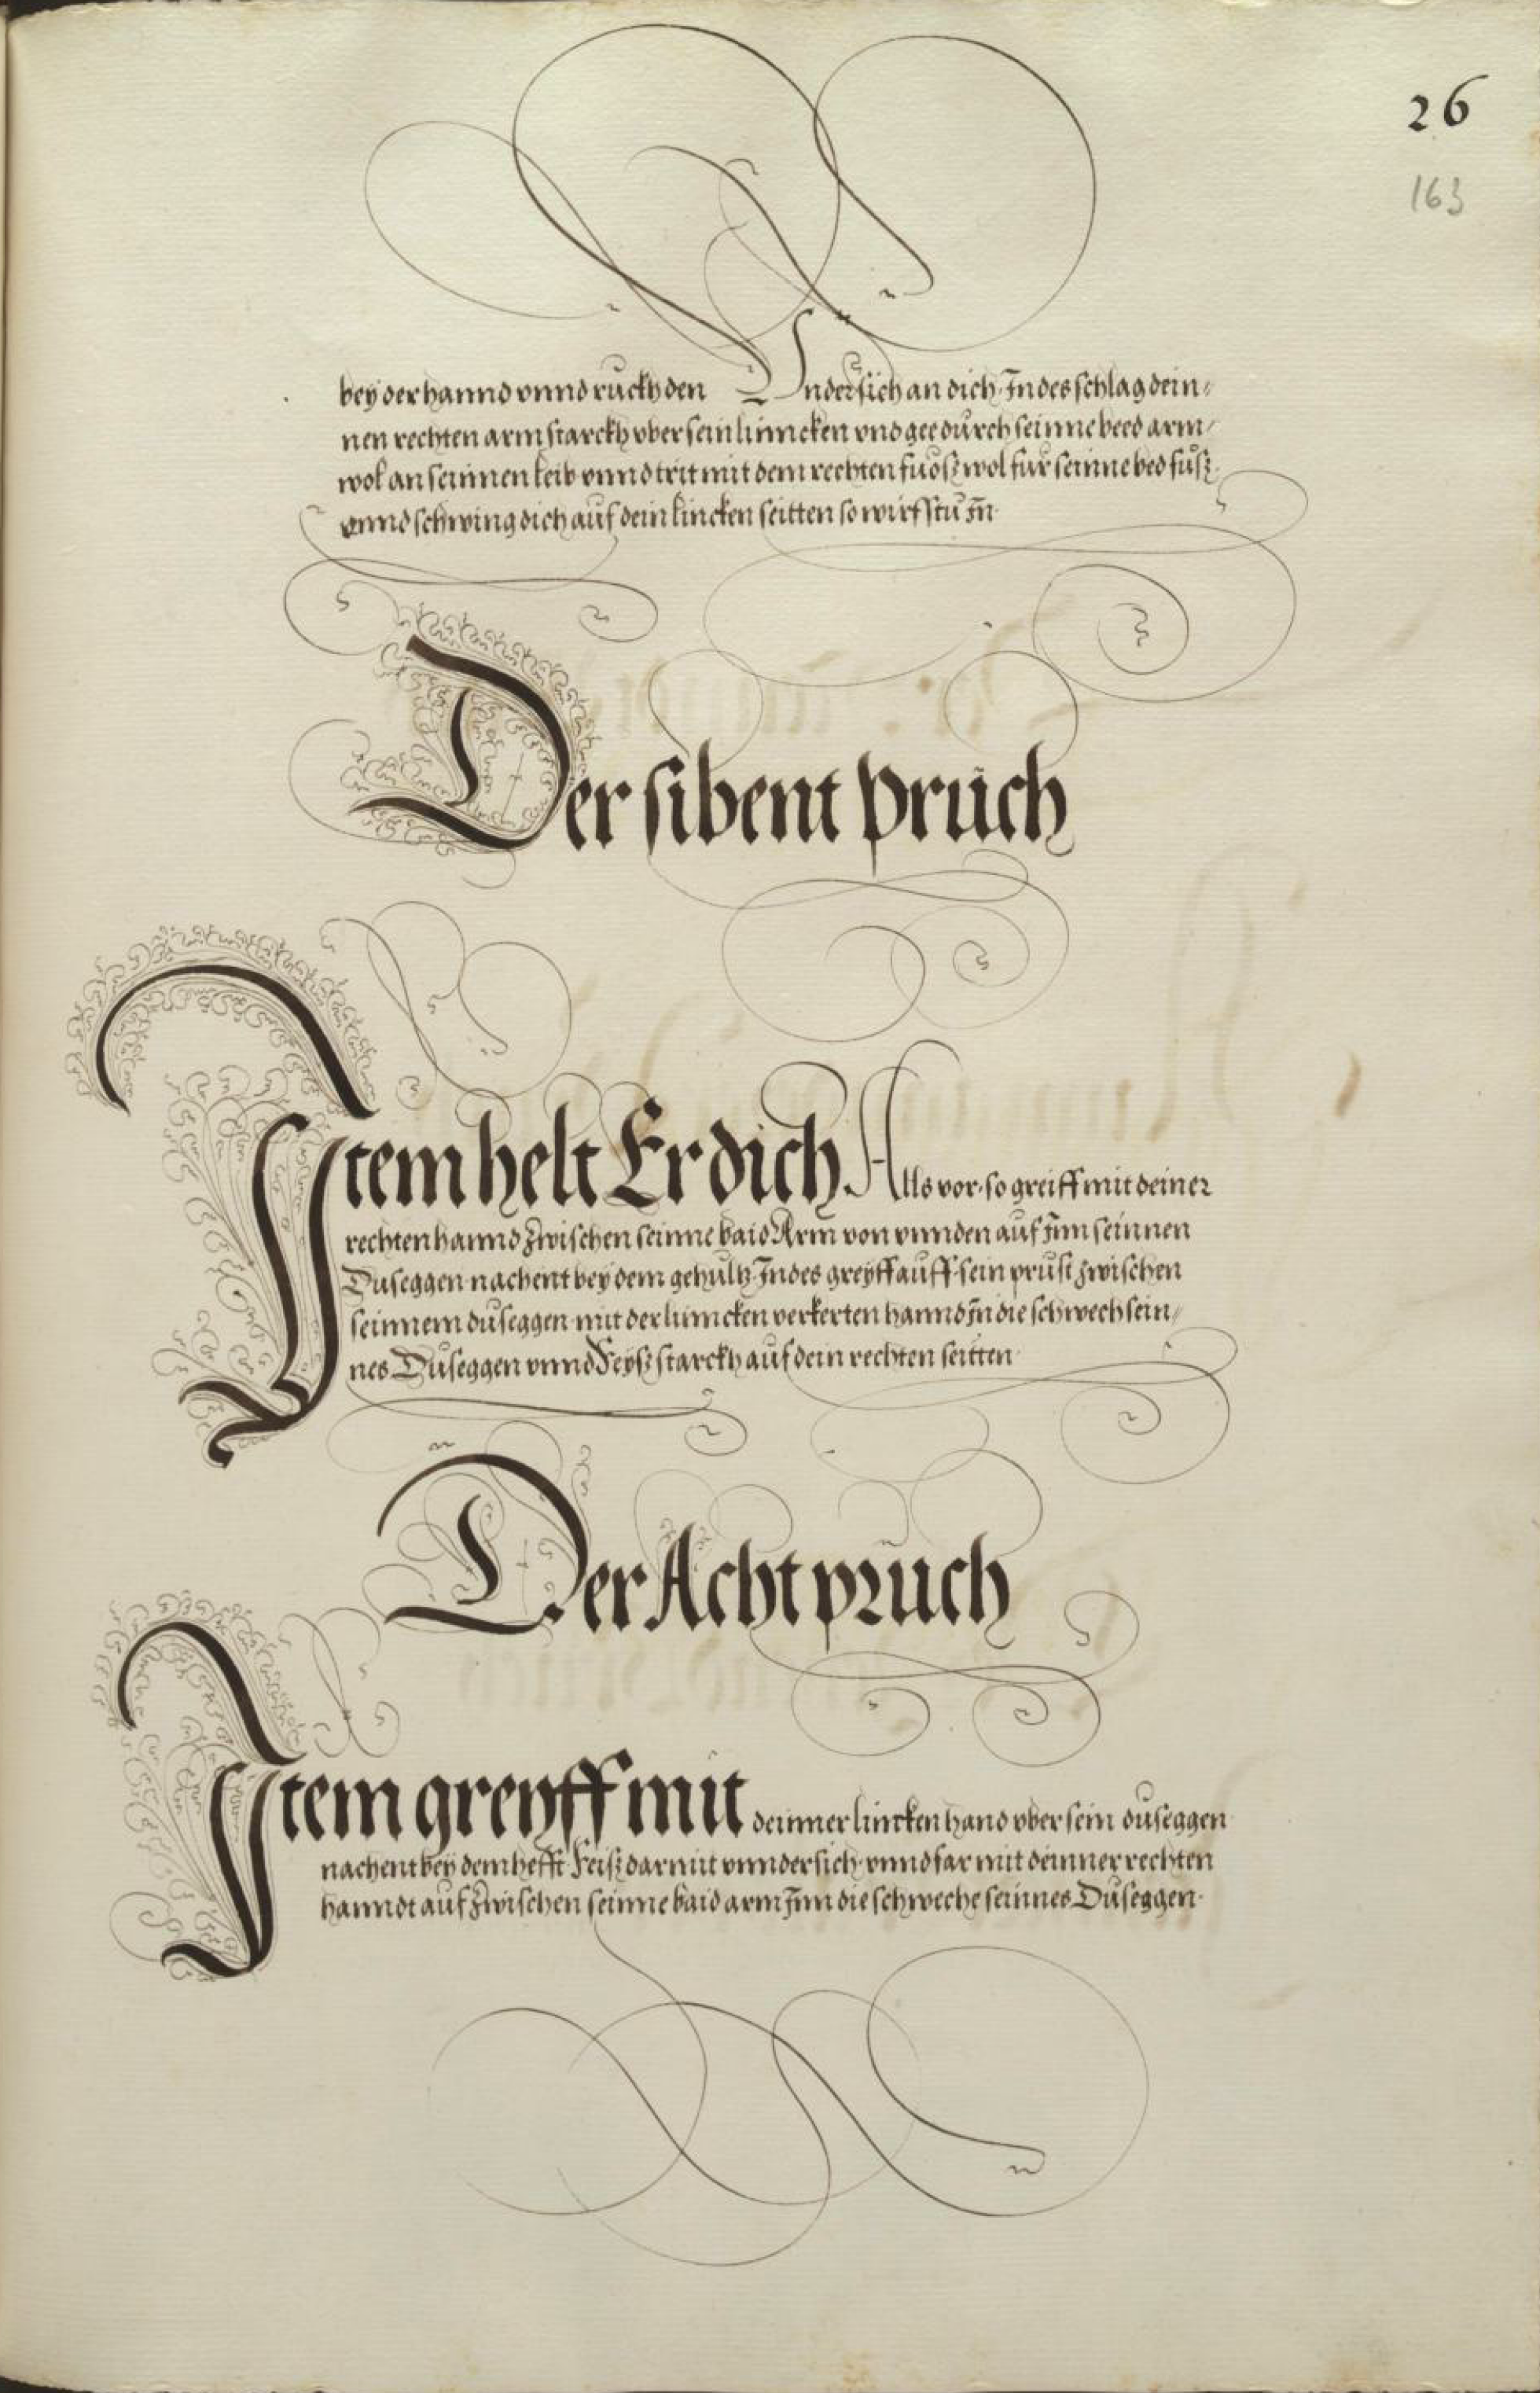 26
163
bey der hannd vnnd ruckh den Vndersich an dich. Indes schlag dein„
nen rechten arm starckh vber sein linncken vnd gee dürch seinne beed arm„
wol an seinnen leib vnnd trit mit dem rechten fuͦsz wol für seinne bed füsz
vnnd schwing dich auf dein lincken seitten so wirfstu In.
Der sibent prüch
Item helt Er dich Alls vor. so greiff mit deiner
rechten hannd zwischen seinne baid Arm von vnnden auf Inn seinnen
Duseggen nachent bey dem gehültz. Indes greyff auff sein prust zwischen
seinnem duseggen mit der linncken verkerten hannd In die schwech sein„
nes Duseggen vnnd Reysz starckh auf dein rechten seitten.
Der Acht pruch
Item greyff mit deinner lincken hand vber sein duseggen
nachent bey dem hefft Reisz darmit vnndersich. vnnd far mit deinner rechten
hanndt auf zwischen seinne baid arm Inn die schweche seinnes Duseggen.